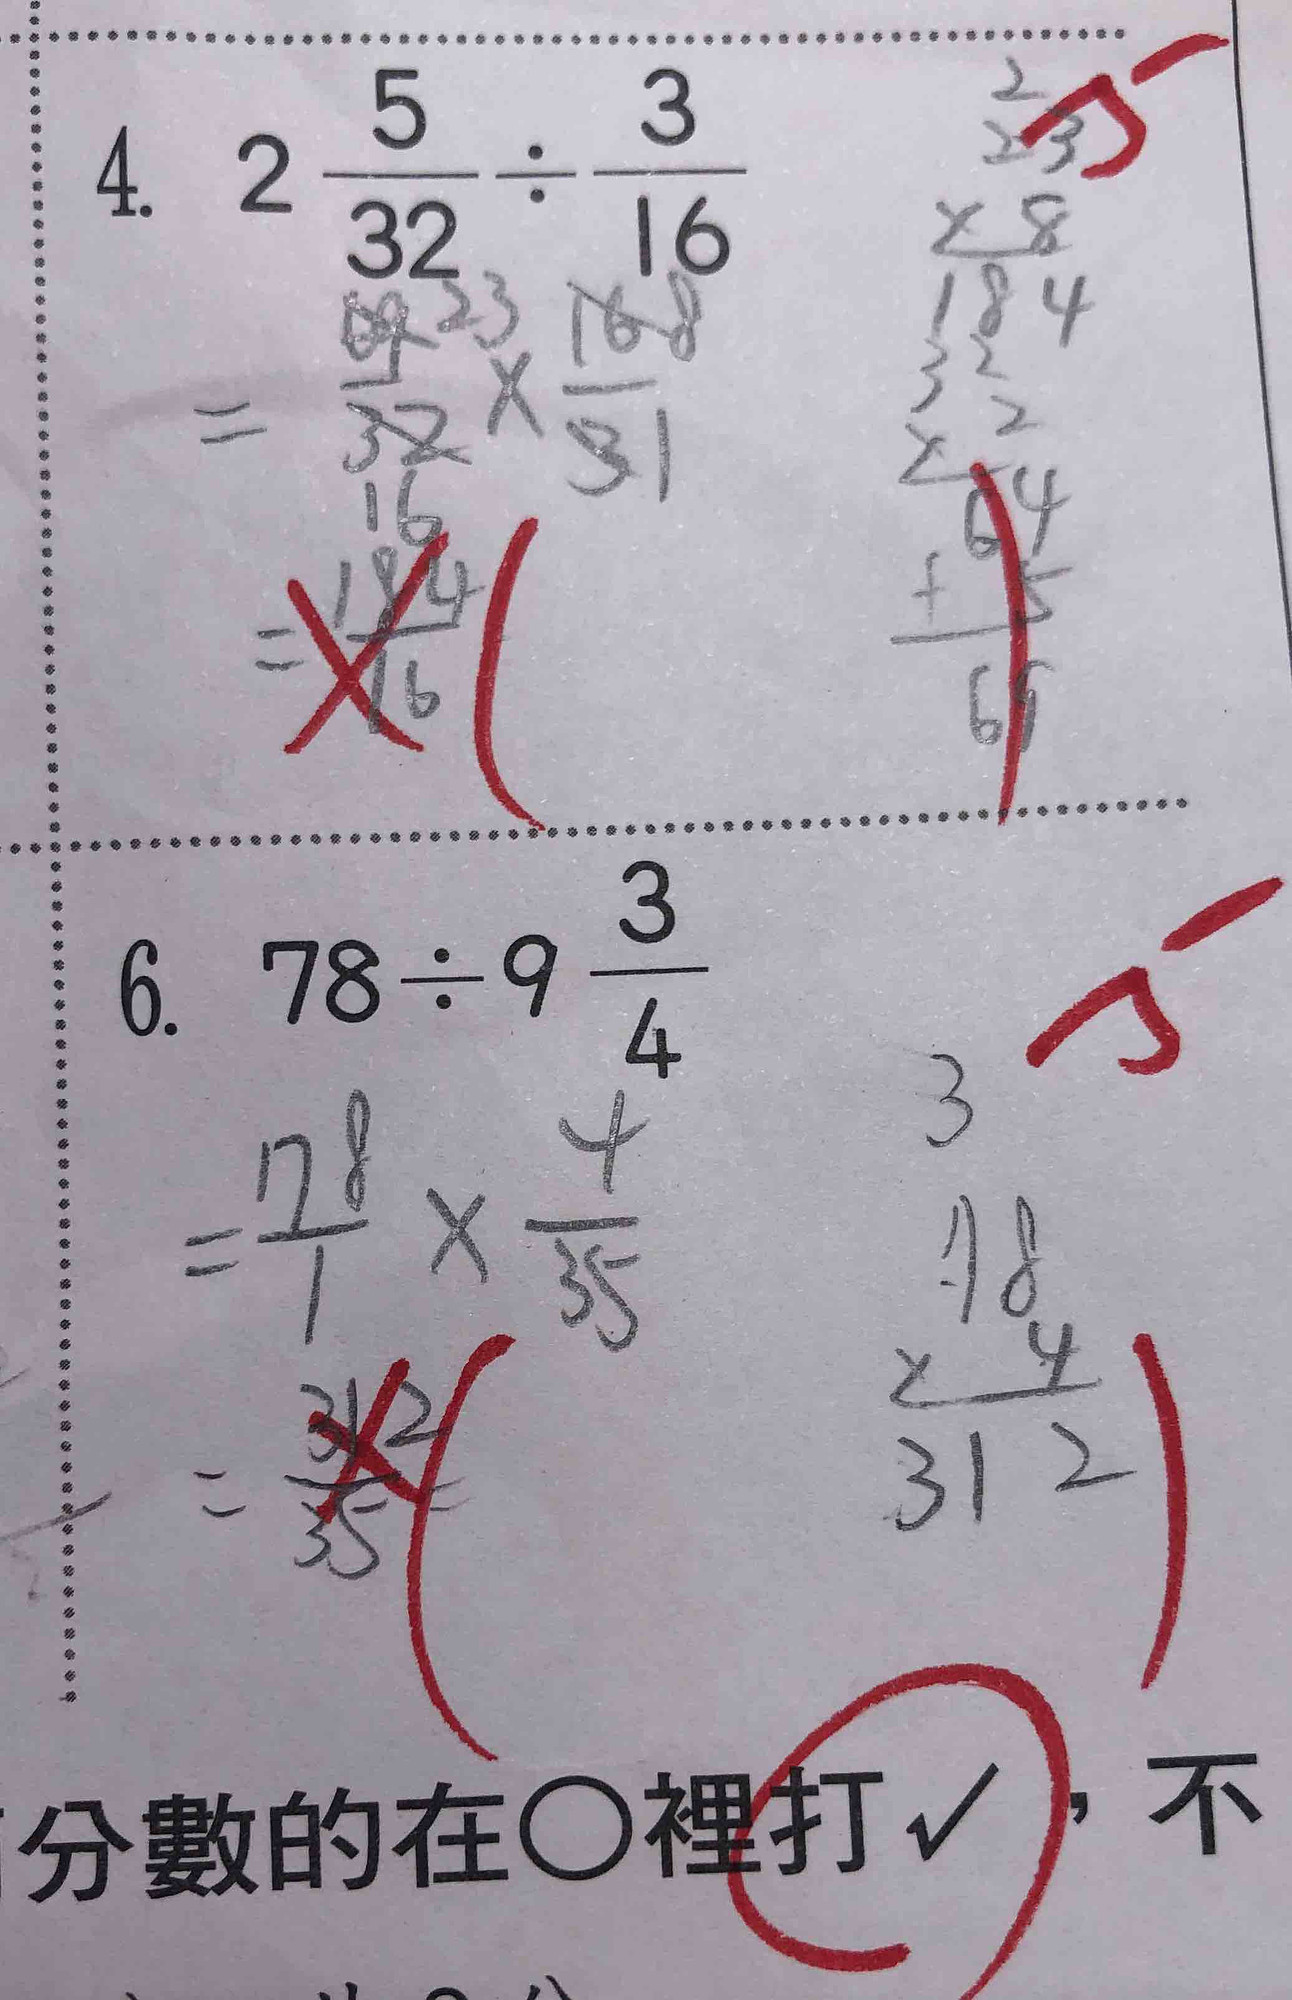 4. 2 5/32 ÷ 3/16
= 69/32 23 16 × 16/3 8 1
= 184/16
2
23
× 8
184
32
× 2
64
+ 5
69
5
6. 78 ÷ 9 3/4
= 78/1 × 4/35
= 312/35 =
3
78
× 4
312
5
分數的在○裡打✓，不